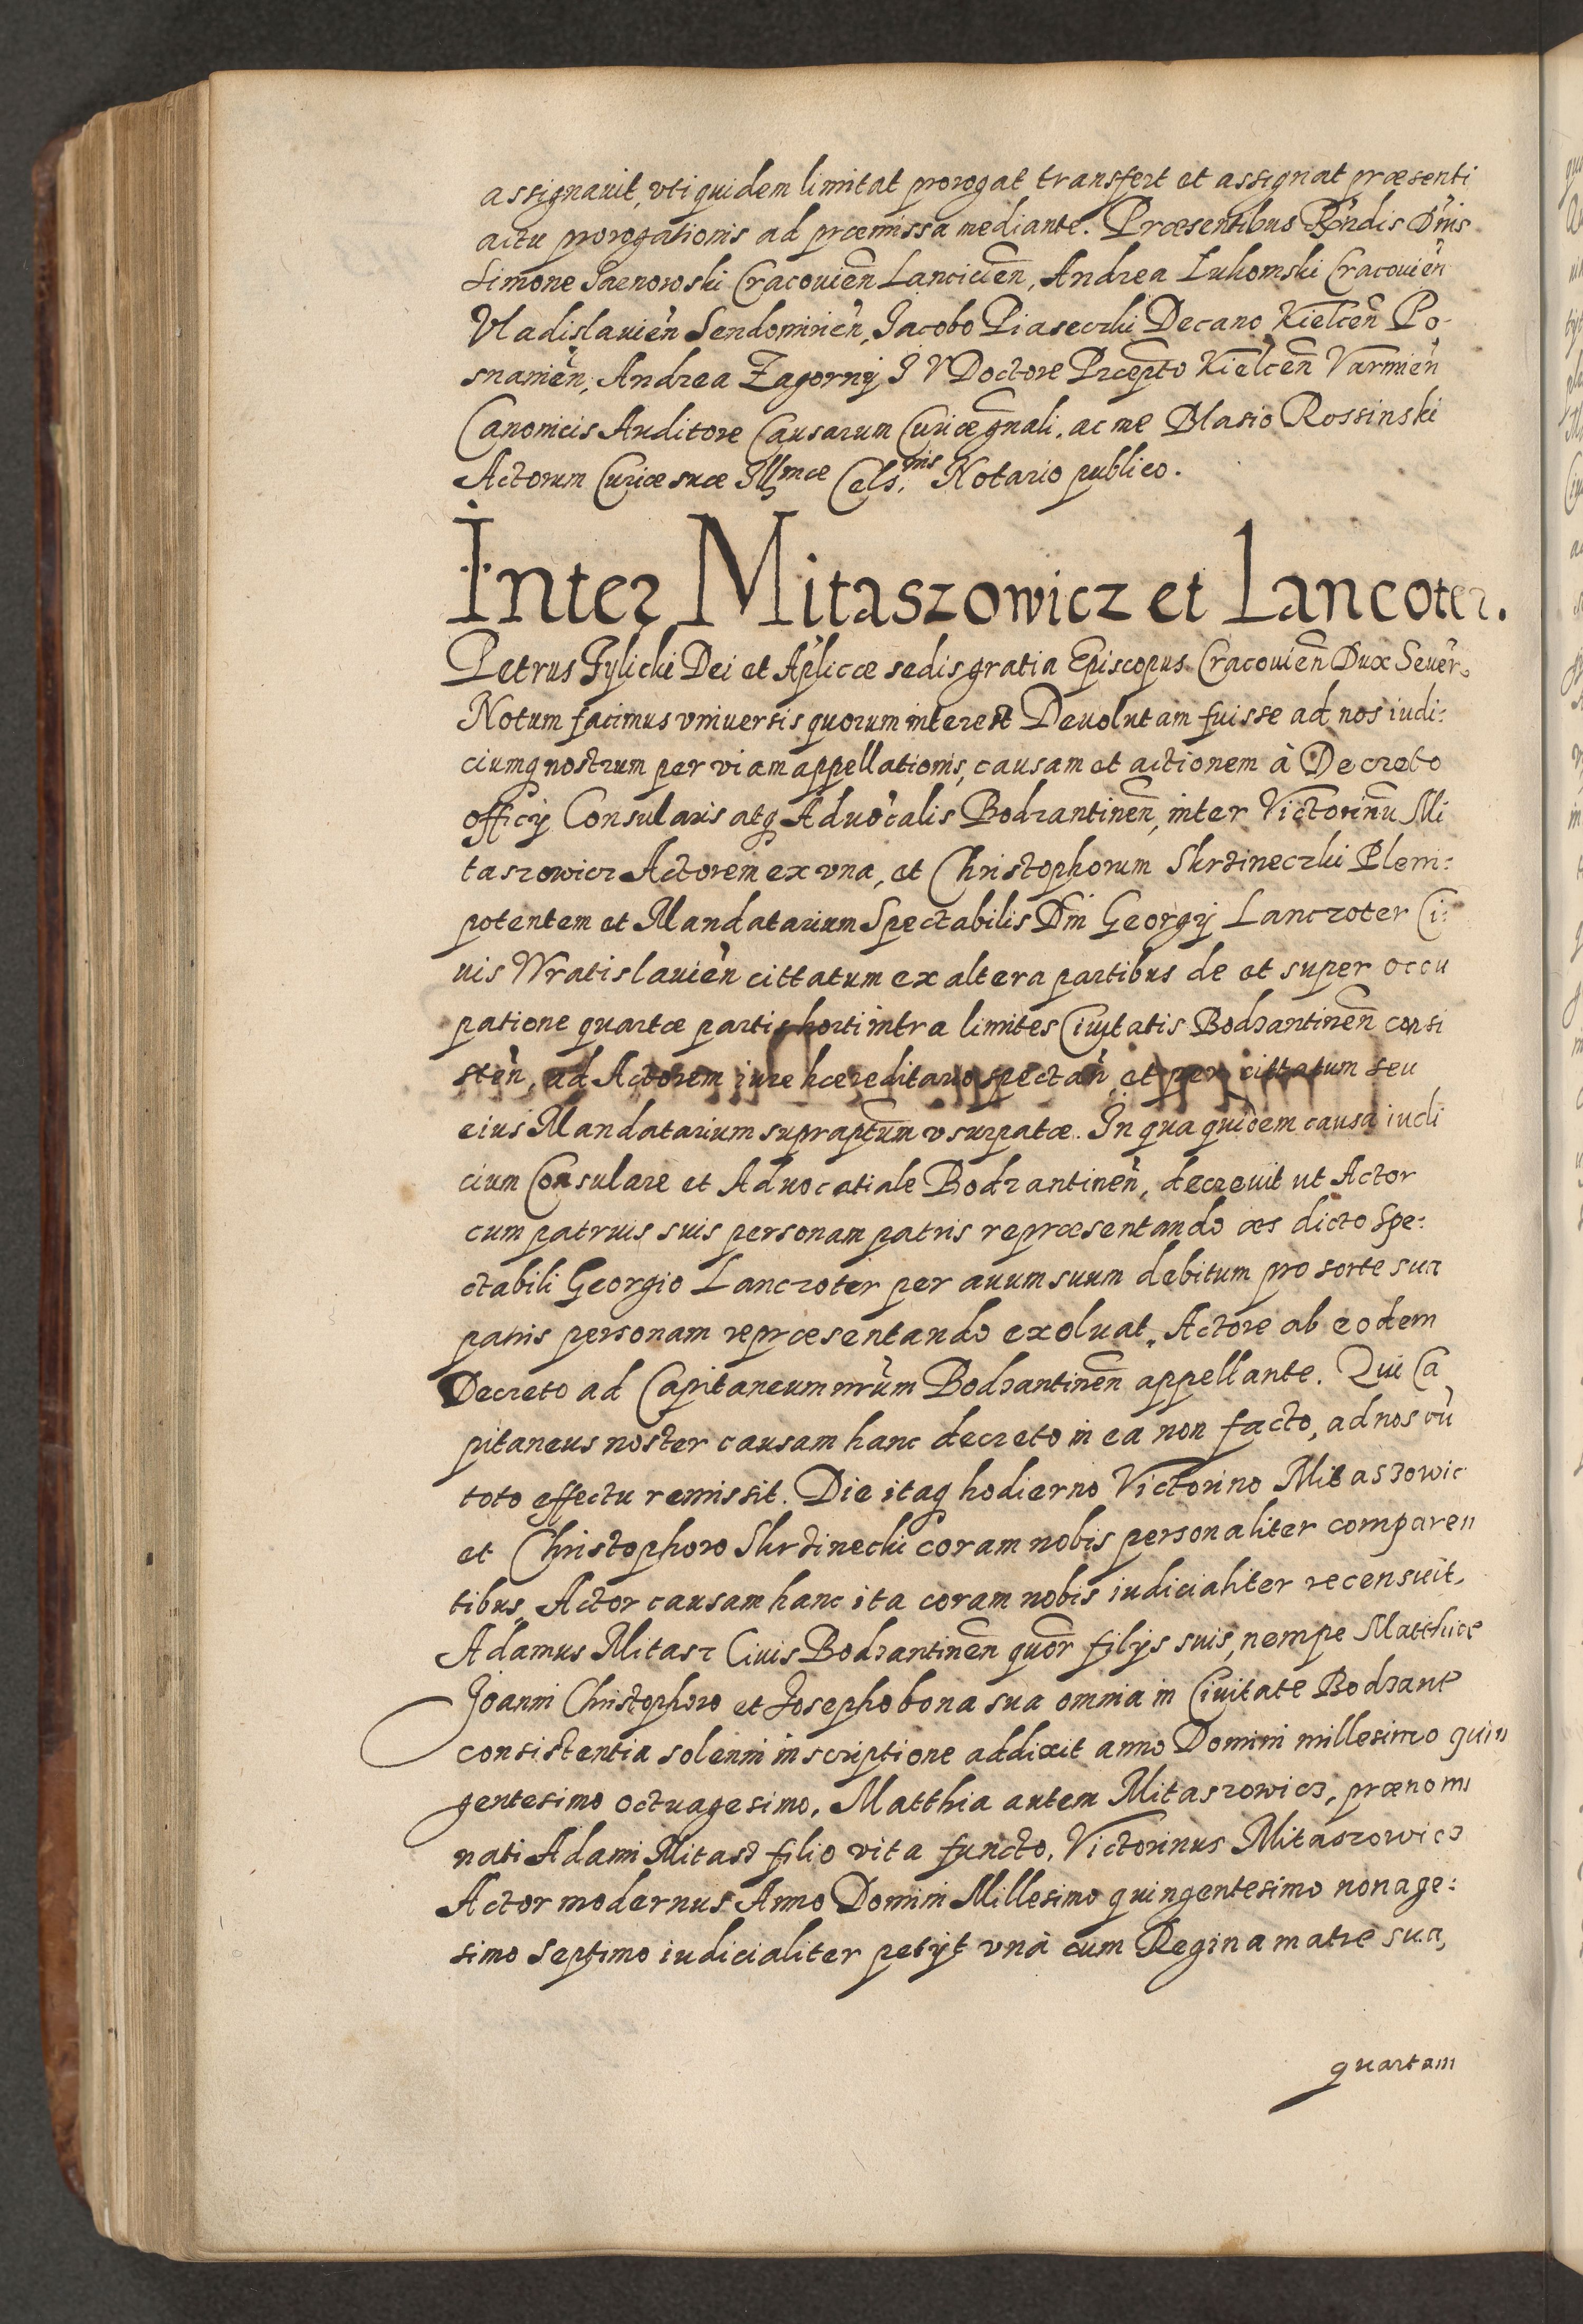 assignauit, vti quidem limitat prorogat transfert et assignat præsenti
actu prorogationis ad præmissa mediante. Præsentibus Rñdis Dñis
Simone Sarnowski Cracouien̄ Lancicien̄, Andrea Lukomski Cracouien̄
Vladislauien̄ Sendomirien̄, Jacobo Piaseczki Decano Kielcen̄ Po-
snanien̄, Andrea Zagorny J V Doctore Præpto Kielcen̄ Varmien̄
Canonicis Auditore Causarum Curiæ gñali, ac me Blasio Rossinski
Actorum Curiæ suæ Illmæ Cels.nis Notario publico.
Inter Mitaszowicz et Lancoter.
Petrus Tylicki Dei et Aplicæ sedis gratia Episcopus Cracouien̄ Dux Seuer.
Notum facimus vniuersis quorum interest Deuolutam fuisse ad nos iudi:
ciumq nostrum per viam appellationis, causam et actionem à Decreto
officij Consularis atq Aduocalis Bodzantinen̄, inter Victorinū Mi
taszowicz Actorem ex vna, et Christophorum Skrzineczki Pleni:
potentem et Mandatarium Spectabilis Dñi Georgij Lanczoter Ci:
uis Wratislauien̄ cittatum ex altera partibus de et super occu
patione quartæ partis horti intra limites Ciuitatis Bodzantinen̄ consi
sten̄, ad Actorem iure hæreditario spectan̄ et per cittatum seu
eius Mandatarium supraptum vsurpatæ. In qua quidem causa iudi
cium Consulare et Aduocatiale Bodzantinen̄, decreuit ut Actor
cum patruis suis personam patris repræsentando æs dicto Spe:
ctabili Georgio Lanczoter per auum suum debitum pro sorte sua
patris personam repræsentando exoluat, Actore ab eodem
Decreto ad Capitaneum nr̄um Bodzantinen̄ appellante. Qui Ca
pitaneus noster causam hanc decreto in ea non facto, ad nos cū
toto effectu remissit. Die itaq hodierno Victorino Mitaszowic
et Christophoro Skrzinecki coram nobis personaliter comparen
tibus, Actor causam hanc ita coram nobis iudicialiter recensuit.
Adamus Mitasz Ciuis Bodzantinen̄ quor̄ filijs suis, nempe Matthiæ
Joanni Christophoro et Josepho bona sua omnia in Ciuitate Bodzant
consistentia solenni inscriptione addixit anno Domini millesimo quin
gentesimo octuagesimo, Matthia autem Mitaszowicz, prænomi
nati Adami Mitasz filio vita functo, Victorinus Mitaszowicz
Actor modernus Anno Domini Millesimo quingentesimo nonage:
simo septimo iudicialiter petijt vnà cum Regina matre sua,
quartam